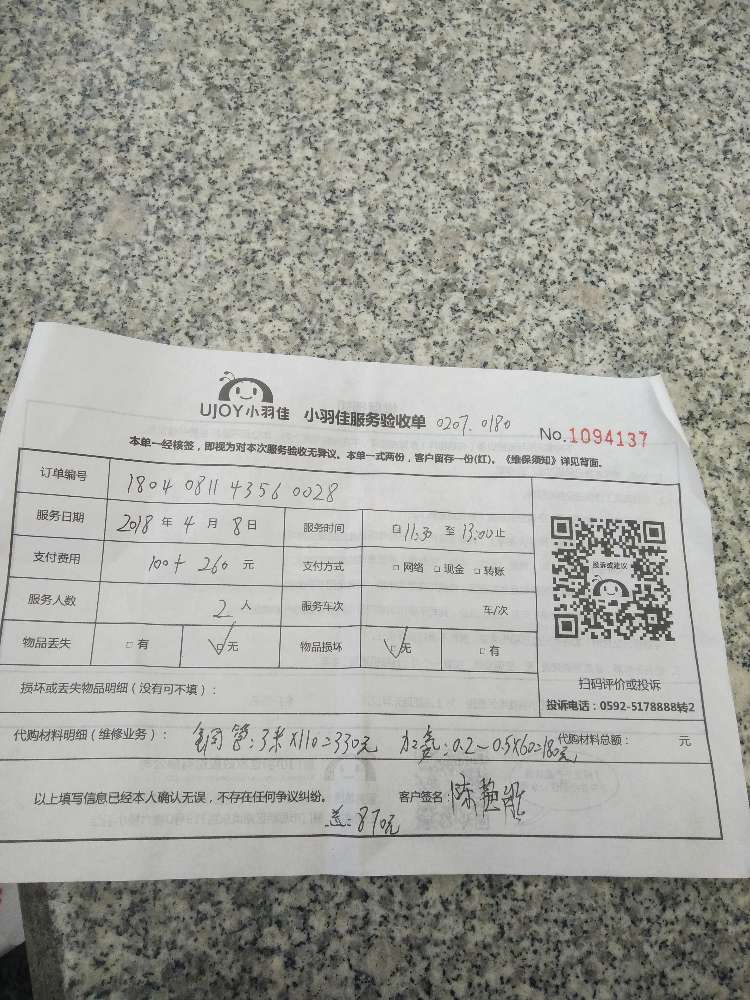 UJOY小羽佳 小羽佳服务验收单 0207.0180
No.1094137
本单一经核签，即视为对本次服务验收无异议。本单一式两份，客户留存一份(红)。《维保须知》详见背面。
订单编号 18040811435600028
服务日期 2018 年 4 月 8 日 服务时间 自 11:30 至 13:00 止
支付费用 100+260 元 支付方式 □ 网络 □ 现金 □ 转账
服务人数 2 人 服务车次 车/次
物品丢失 □ 有 ☑ 无 物品损坏 ☑ 无 □ 有
投诉或建议
扫码评价或投诉
投诉电话：0592-5178888转2
损坏或丢失物品明细（没有可不填）：
代购材料明细（维修业务）： 铜管:3米×110=330元 加氢:0.2~0.5×60=180元 代购材料总额： 元
以上填写信息已经本人确认无误，不存在任何争议纠纷。 客户签名：
870元